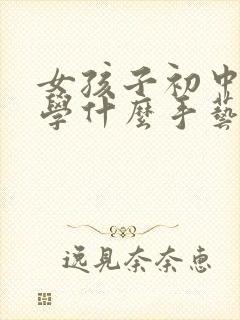 女孩子初中
學什麼手藝
逸見奈奈惠